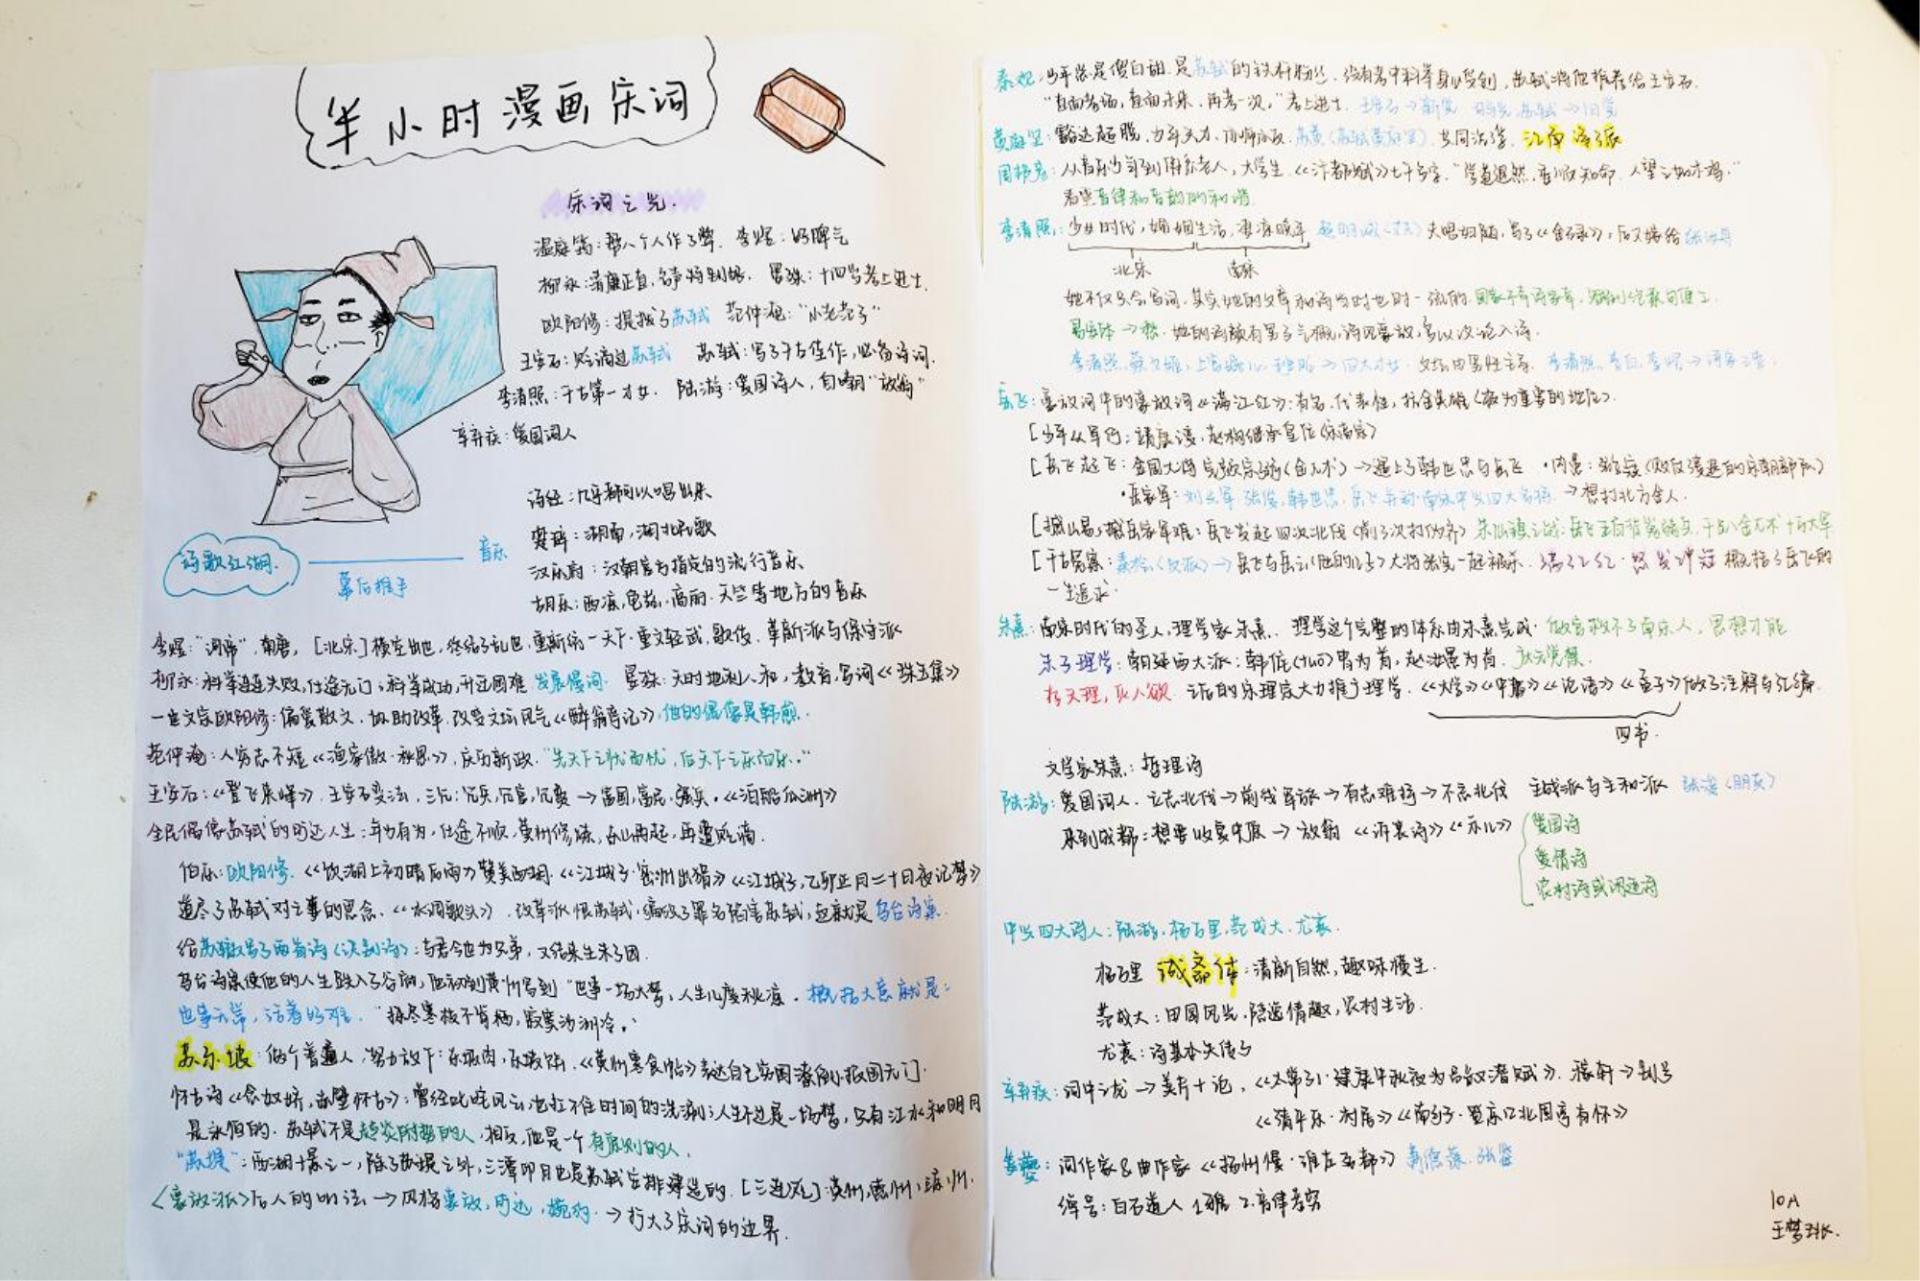 半小时漫画宋词
宋词之光.
温庭筠：帮八个人作了弊. 李煜：好脾气
柳永：清廉正直,名声特别臭. 晏殊：十四岁考上进士.
欧阳修：提拔了苏轼 范仲淹："小老范子"
王安石：贬谪过苏轼 苏轼：写了千古佳作,必备诗词.
李清照：千古第一才女. 陆游：爱国诗人,自嘲"放翁"
辛弃疾：爱国词人
诗经：几乎都可以唱出来
楚辞：湖南,湖北民歌
汉乐府：汉朝官方指定的流行音乐
胡乐：西凉,龟兹,高丽.天竺等地方的音乐
诗歌江湖. 幕后推手 音乐
李煜："词帝".南唐. [北宋]横空出世,终结了乱世,重新统一天下.重文轻武,歌伎.革新派与保守派
柳永：科举连连失败,仕途无门；科举成功,升迁困难 发展慢词. 晏殊：天时地利人和,教育,写词《珠玉集》
一代文宗欧阳修：偏爱散文.协助改革.改变文坛风气《醉翁亭记》,他的偶像是韩愈.
范仲淹：人穷志不短《渔家傲·秋思》,庆历新政."先天下之忧而忧,后天下之乐而乐."
王安石：《登飞来峰》.王安石变法,三冗：冗兵,冗官,冗费→富国,富民,强兵.《泊船瓜洲》
全民偶像苏轼的旷达人生：年少有为,仕途不顺,黄州修炼,东山再起,再遭贬谪.
伯乐：欧阳修.《饮湖上初晴后雨》赞美西湖.《江城子·密州出猎》《江城子,乙卯正月二十日夜记梦》
道尽了苏轼对亡妻的思念.《水调歌头》.改革派恨苏轼,编放了罪名陷害苏轼,这就是乌台诗案.
给苏辙写了两首诗(诀别诗)：与君今世为兄弟,又结来生未了因.
乌台诗案使他的人生跌入了谷底,他初到黄州写到"世事一场大梦,人生几度秋凉.概括大意就是：
世事无常,活着好难."拣尽寒枝不肯栖,寂寞沙洲冷."
苏东坡：做个普通人,努力放下：东坡肉,东坡饼.《黄州寒食帖》表达自己穷困潦倒,报国无门.
怀古词《念奴娇,赤壁怀古》：曾经叱咤风云也扛不住时间的洗涮；人生不过是一场梦,只有江水和明月
是永恒的.苏轼不是趋炎附势的人,相反,他是一个有原则的人.
"苏堤"：西湖十景之一,除了苏堤之外,三潭印月也是苏轼安排建造的.[三连贬]：黄州,惠州,琼州.
<豪放派>后人的叫法→风格豪放,旷达,婉约.→扩大了宋词的边界.
秦观：少年总是傻白甜.是苏轼的铁杆粉丝.没有考中科举身心受创,苏轼将他推荐给王安石.
"直面考场,直面未来,再考一次,"考上进士.王安石→新党 司马光,苏轼→旧党
黄庭坚：豁达超脱,力争大方.亦师亦友.苏黄(苏轼黄庭坚)共同活动.江西诗派
周邦彦：从音乐少年到音乐老人,大学生.《汴都赋》七千多字."学道退然,委顺知命,人望之如木鸡."
看重音律和音韵的和谐.
李清照：少女时代,婚姻生活,凄凉晚年 赵明诚(丈夫)夫唱妇随,写了《金石录》,后又嫁给张汝舟
北宋 南宋
她不仅只会写词,其实她的文章和诗当时也时一流的.国家不幸诗家幸,
易安体→愁.她的词颇有男子气概,词风豪放,多以议论入诗.
李清照,蔡文姬,上官婉儿,班昭→四大才女.文坛由男性主导.李清照,李白,李煜→词家三李.
岳飞：豪放词中的豪放词《满江红》：有名,代表性,抗金英雄(极为重要的地位).
[少年从军行：靖康之变,赵构继承皇位(宋高宗)
[岳飞起飞：金国大将完颜宗弼(金兀术)→遇上了韩世忠与岳飞
·岳家军：刘光军,张俊,韩世忠,岳飞并列南宋中兴四大名将.→想打北方金人.
[撼山易,撼岳家军难：岳飞发起四次北伐 朱仙镇之战：岳飞
[千古冤案：秦桧(反派)→岳飞与岳云(他的儿子)大将张宪一起被杀.满江红·怒发冲冠 概括了岳飞的
一生追求.
朱熹：南宋时代的圣人,理学家朱熹. 理学这个完整的体系由朱熹完成.做官救不了南宋人,思想才能
朱子理学：朝廷两大派：韩侂(tuō)胄为首,赵汝愚为首.庆元党禁.
存天理,灭人欲.之后的宋理宗大力推广理学.《大学》《中庸》《论语》《孟子》做了注解与汇编.
四书.
文学家朱熹：哲理诗
陆游：爱国词人.立志北伐→前线军旅→有志难择→不忘北伐 主战派与主和派
来到成都：想要收复中原→放翁《示儿》
爱国诗
爱情诗
农村诗或闲适诗
中兴四大诗人：陆游,杨万里,范成大,尤袤.
杨万里 诚斋体：清新自然,趣味横生.
范成大：田园风光,隐逸情趣,农村生活.
尤袤：诗基本失传了
辛弃疾：词中之龙→美芹十论,《太常引·建康中秋夜为吕叔潜赋》.稼轩→别号
《清平乐·村居》《南乡子·登京口北固亭有怀》
姜夔：词作家&曲作家《扬州慢·淮左名都》萧德藻.张鉴
绰号：白石道人 1.雅 2.音律考究
10A